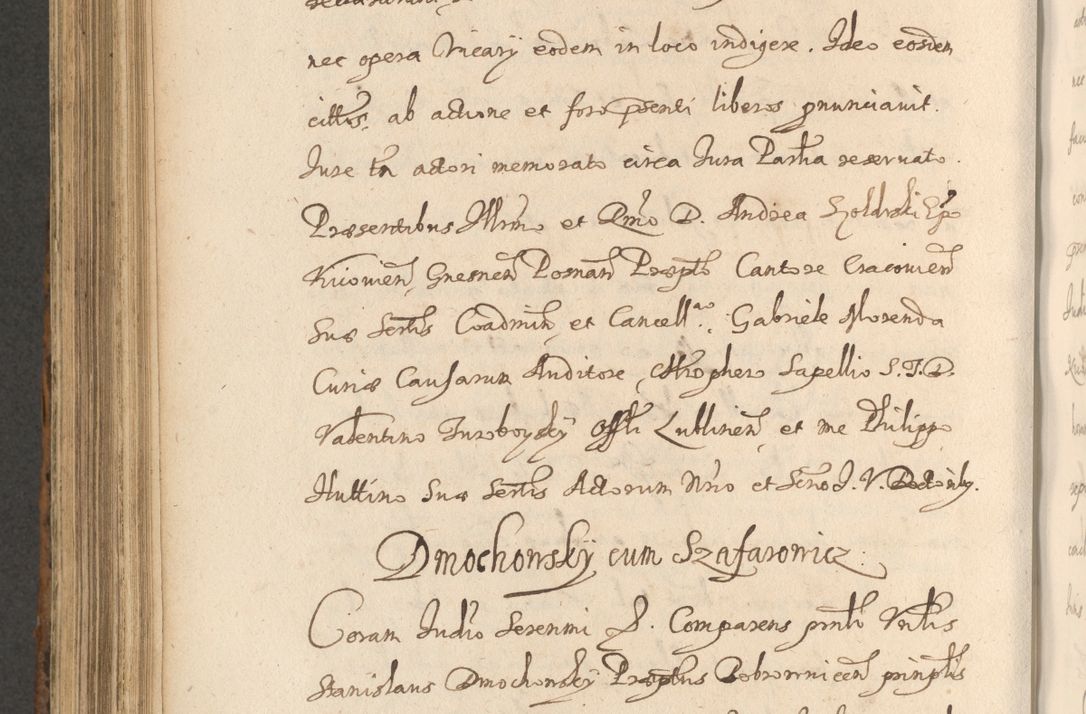 nec opera Vicarÿ eodem in loco indigere. Ideo eosdem
cittos, ab actione et foro psenti liberos pnunciavit.
Jure tn actori memorato circa Jura Partia reservato.
Præsentibus Illrmo et Rmo D. Andrea Szoldrski Epo
Kiiovien, Gnesnen Posnan Præpto Cantore Cracovien
Suæ Sertis Coadmin, et Cancellrio. Gabriele Morenda
Curiæ Causarum Auditore, Chrophero Sapellio S.T.D.
Valentino Turoboysky Offli Lublinen, et me Philippo
Huttino Suæ Sertis Actorum Nrio et Scno J. V. Doctorib.
Dmochowskÿ cum Szafarowicz.
Coram Judio Serenmi P. Comparens pntr Vntlis
Stanislaus Dmochonskÿ Præptus Dobrovnicen pinplis